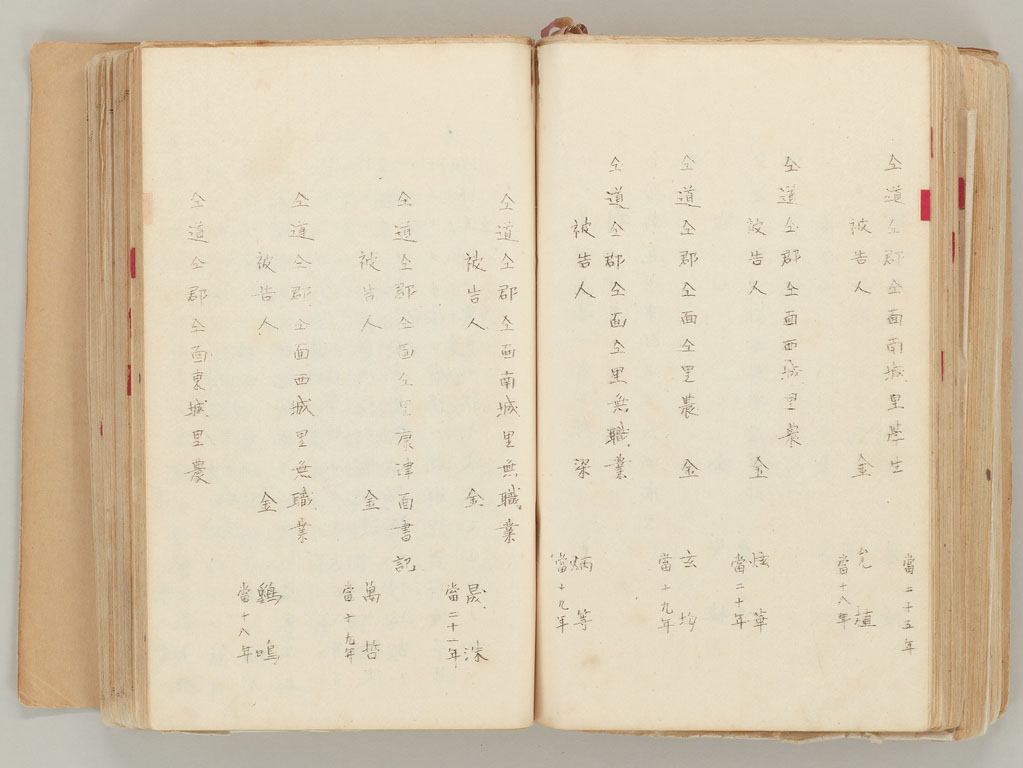 當二十五年
仝道仝郡仝面南城里學生
被告人 金 允植
當十八年
仝道仝郡仝面西城里農
被告人 金 炫華
當二十年
仝道仝郡仝面仝里農
金 玄均
當十九年
仝道仝郡仝面仝里無職業
被告人 梁 炳等
當十九年
仝道仝郡仝面南城里無職業
被告人 金 晟洙
當二十一年
仝道仝郡仝面仝里康津面書記
被告人 金 萬哲
當十九年
仝道仝郡仝面西城里無職業
被告人 金 鷄鳴
當十八年
仝道仝郡仝面東城里農